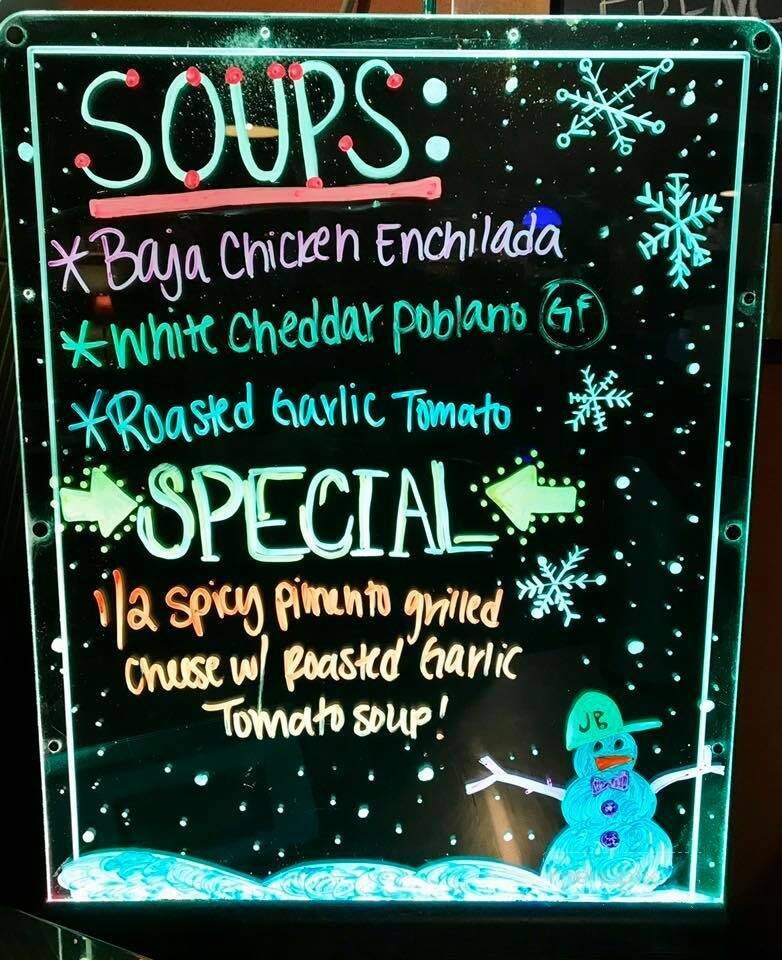 SOUPS:
*Baja Chicken Enchilada
*White Cheddar Poblano GF
*Roasted Garlic Tomato
SPECIAL
1/2 spicy pimento grilled
cheese w/ Roasted Garlic
Tomato soup!
JB